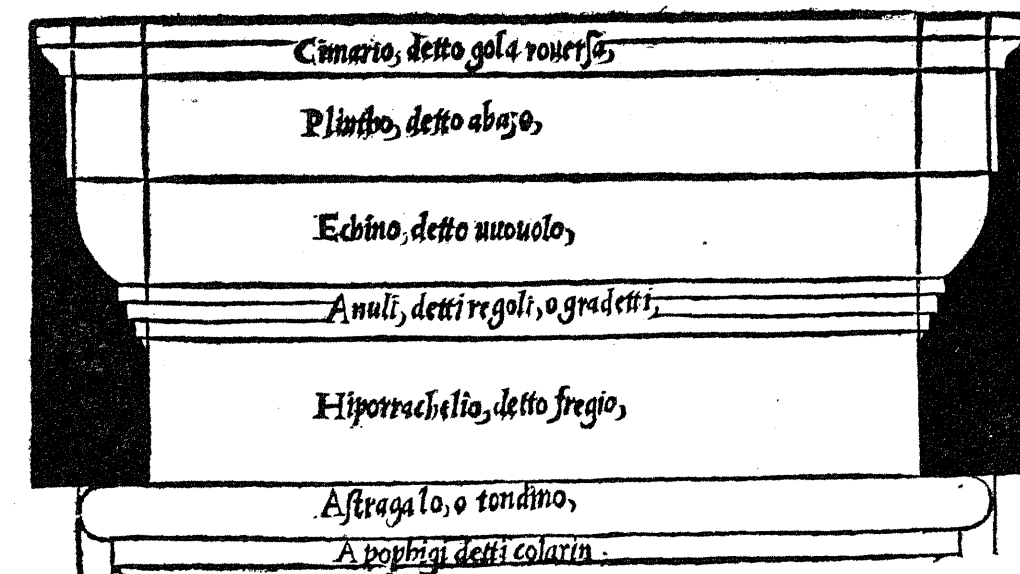 Cimatio, detto gola rouerſa,
Plintho, detto abaco,
Echino, detto uuouolo,
Anuli, detti regoli, o gradetti,
Hipotrachelio, detto fregio,
Aſtragalo, o tondino,
Apophigi detti colarin